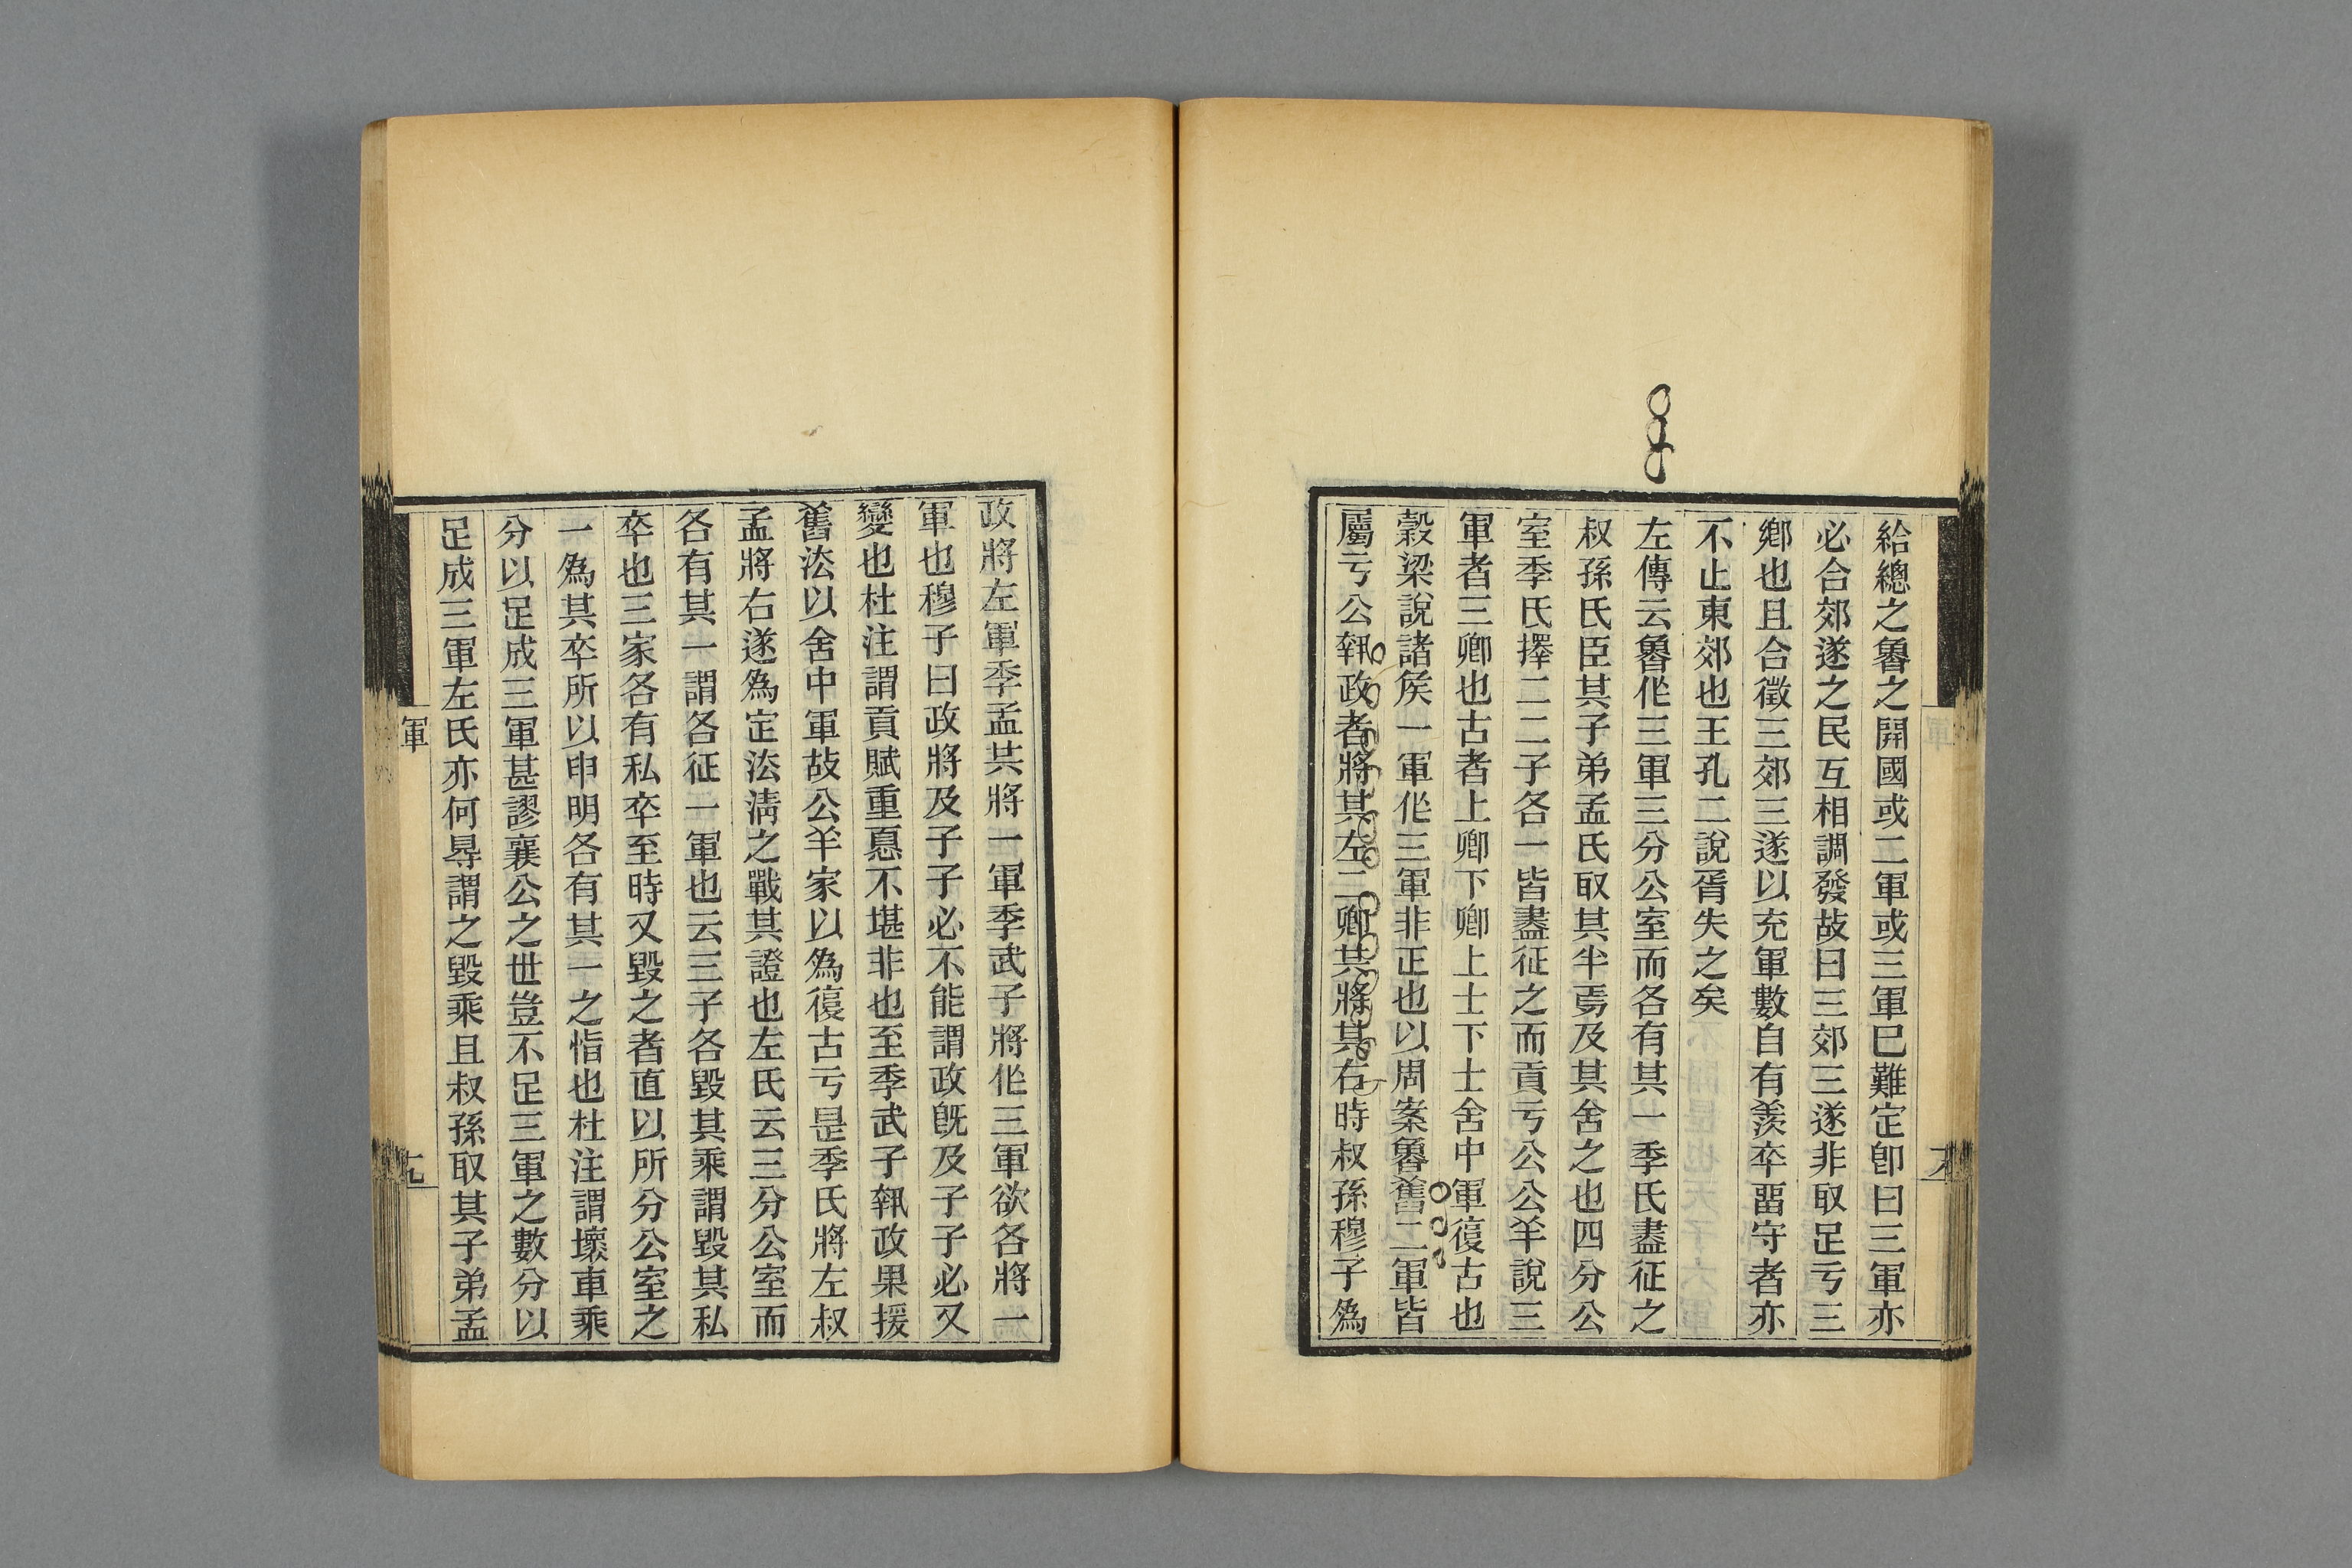 給總之魯之開國或二軍或三軍巳難定卽曰三軍亦
必合郊遂之民互相調發故曰三郊三遂非取足亏三
鄉也且合徵三郊三遂以充軍數自有羨卒畱守者亦
不止東郊也王孔二說胥失之矣
左傳云魯作三軍三分公室而各有其一季氏盡征之
叔孫氏臣其子弟孟氏取其半焉及其舍之也四分公
室季氏擇二二子各一皆盡征之而貢亏公公羊說三
軍者三卿也古者上卿下卿上士下士舍中軍復古也
穀梁說諸矦一軍作三軍非正也以周案魯舊二軍皆
屬亏公執政者將其左二卿共將其右時叔孫穆子爲
政將左軍季孟共將一軍季武子將作三軍欲各將一
軍也穆子曰政將及子子必不能謂政旣及子子必又
變也杜注謂貢賦重憂不堪非也至季武子執政果援
舊法以舍中軍故公羊家以爲復古亏是季氏將左叔
孟將右遂爲定法淸之戰其證也左氏云三分公室而
各有其一謂各征一軍也云三子各毀其乘謂毀其私
卒也三家各有私卒至時又毀之者直以所分公室之
一爲其卒所以申明各有其一之恉也杜注謂壞車乘
分以足成三軍甚謬襄公之世豈不足三軍之數分以
足成三軍左氏亦何得謂之毀乘且叔孫取其子弟孟
軍